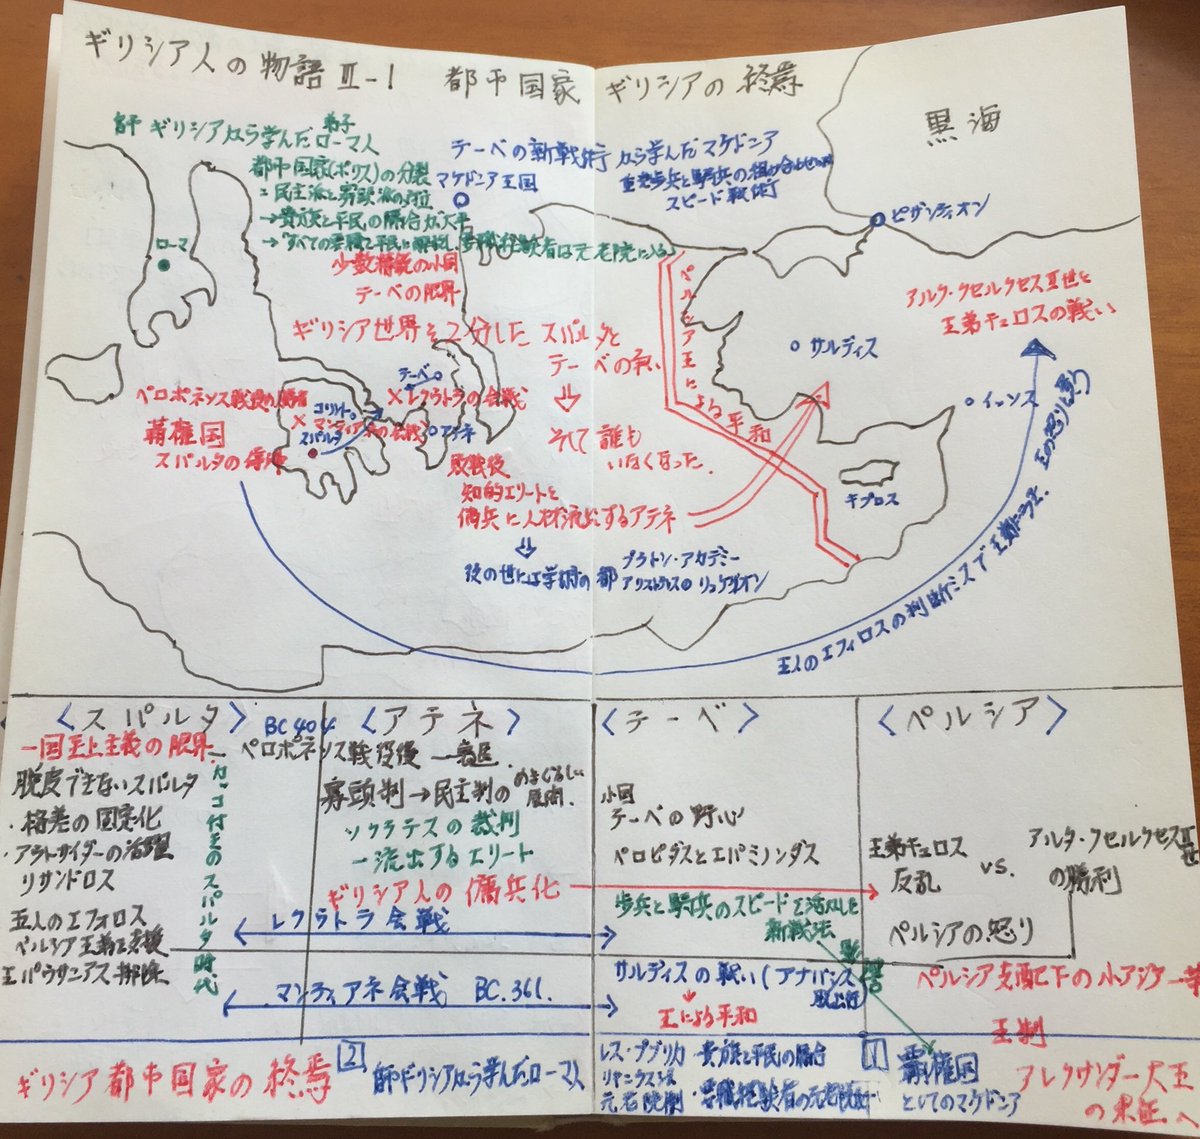 ギリシア人の物語Ⅲ-1 都市国家 ギリシアの終焉
師 ギリシアから学んだローマ人
弟子
都市国家(ポリス)の分裂
=民主派と寡頭派の対立
→貴族と平民の融合が大事
→すべての要職を平民に解放し、要職経験者は元老院に入る
テーベの新戦術から学んだマケドニア
重装歩兵と騎兵の組み合わせ
スピード戦術
マケドニア王国
黒海
ビザンティオン
ローマ
少数精鋭の小国
テーベの限界
ギリシア世界を2分したスパルタと
テーベの争い
⇩
そして誰も
いなくなった.
ペルシア王による平和
アルタ・クセルクセスⅡ世と
王弟キュロスの戦い
サルディス
イッソス
キプロス
テーベ
×レウクトラの会戦
コリント
×マンティネアの会戦
スパルタ
アテネ
ペロポネソス戦役の勝者
覇権国
スパルタの
敗戦後
知的エリートと
傭兵に人材流出するアテネ
⇩
後の世には学問の都
プラトン・アカデミー
アリストテレスのリュケイオン
五人のエフォロスの判断ミスで王弟に
王の怒り
<スパルタ>
一国至上主義の限界
脱皮できないスパルタ
・格差の固定化
・アウトサイダーの活躍
リサンドロス
五人のエフォロス
ペルシア王弟を支援
王パウサニアス排除
カッコ付きのスパルタ時代
BC404
<アテネ>
ペロポネソス戦役後
寡頭制→民主制の
めまぐるしい
展開.
ソクラテスの裁判
―流出するエリート
ギリシア人の傭兵化
レウクトラ会戦
マンティアネ会戦 BC.361.
<テーベ>
小国
テーベの野心
ペロピダスとエパミノンダス
歩兵と騎兵のスピードを活かした
新戦法
サルディスの戦い(アナバシス
王による平和
<ペルシア>
王弟キュロス
反乱
vs.
アルタ・クセルクセスⅡ世
の勝利
ペルシアの怒り
ペルシア支配下の小アジア一帯
王制
ギリシア都市国家の終焉
2 師ギリシアから学んだローマ人
レス・プブリカ・貴族と平民の融合
リキニウス法
元老院制・要職経験者の元老院
1 覇権国
としてのマケドニア
アレクサンダー大王
の東征へ